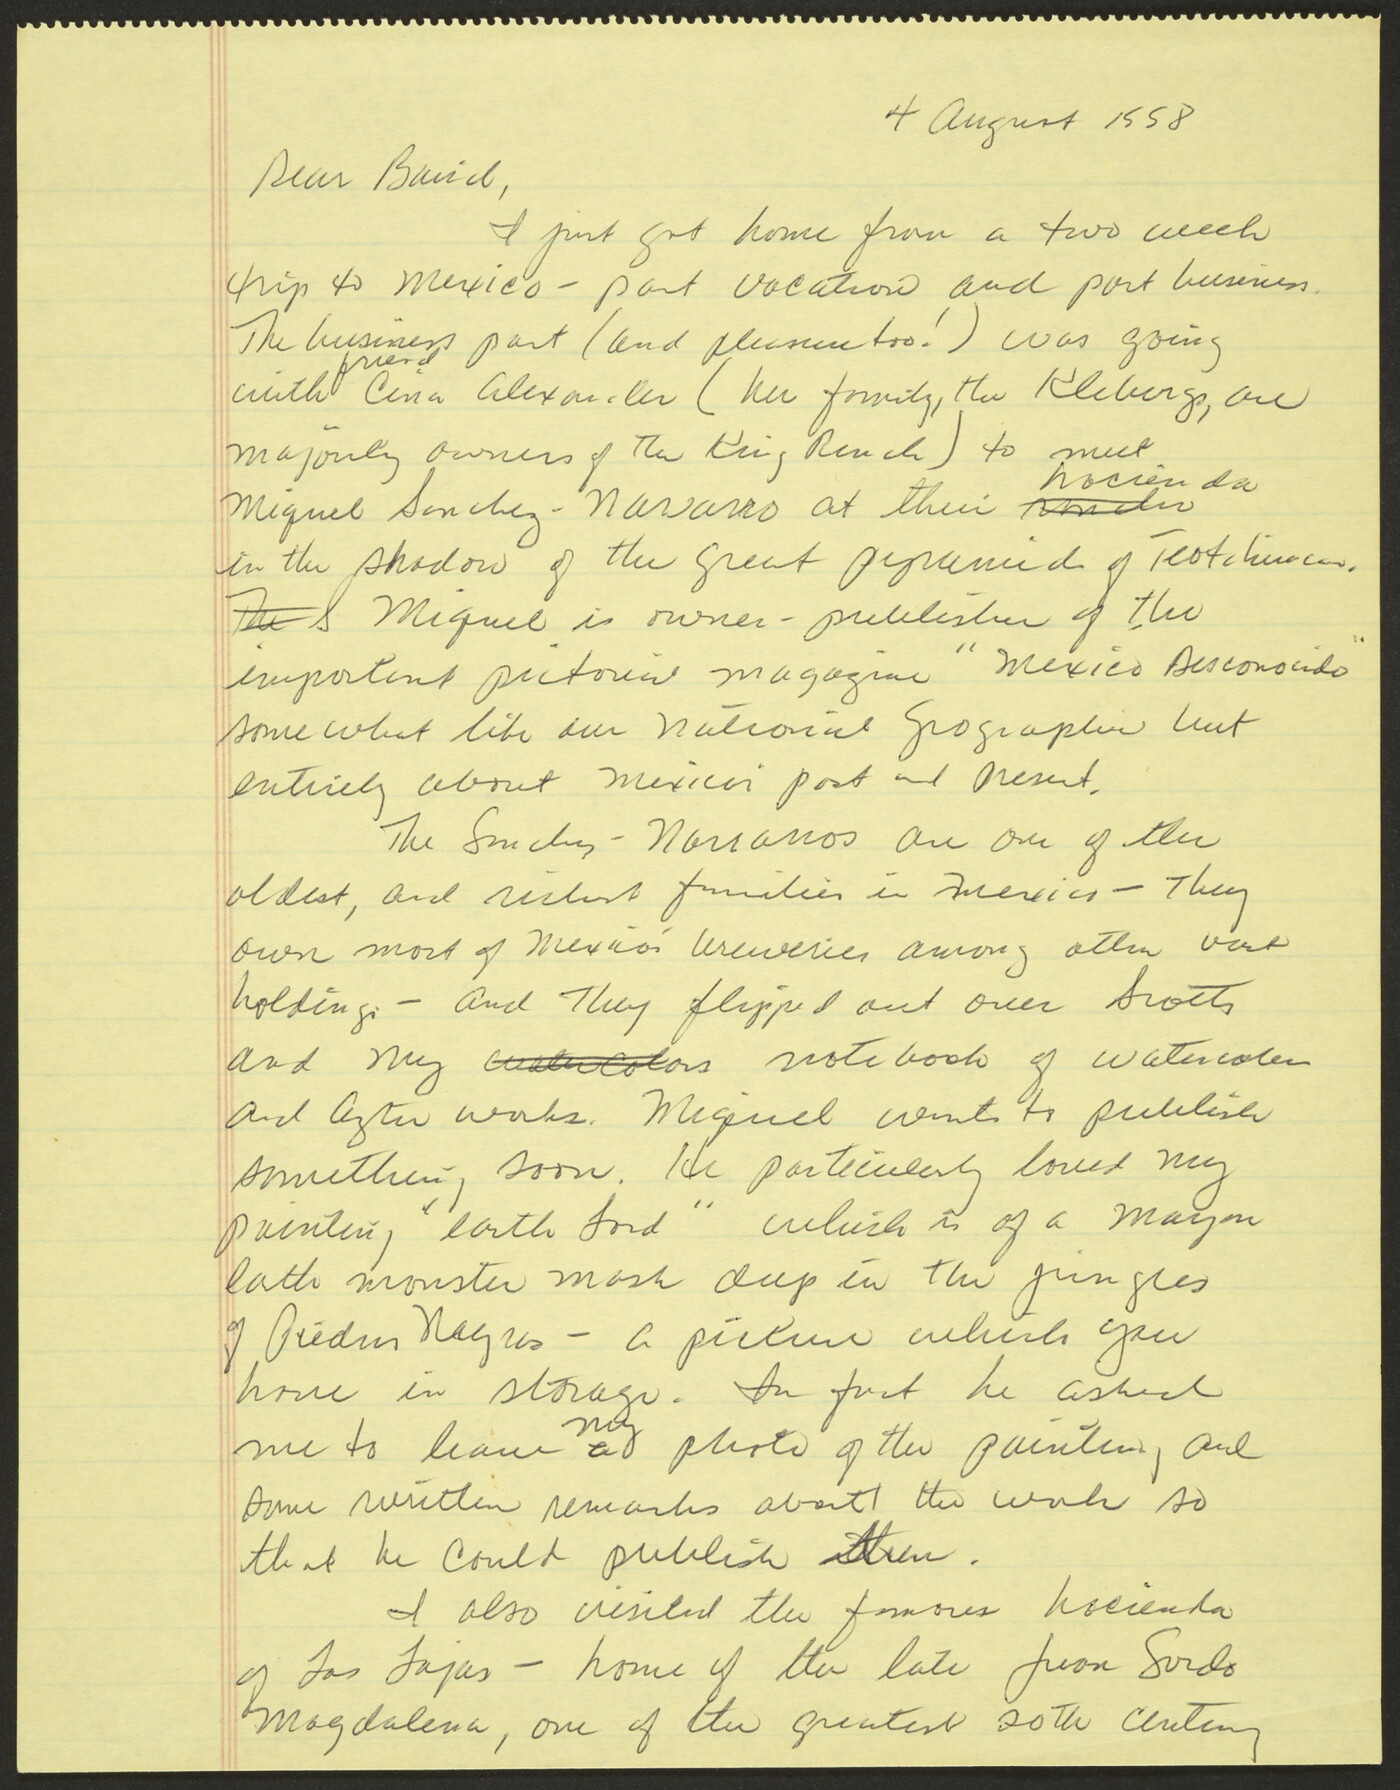 4 August 1998
Dear Baird,
I just got home from a two week
trip to Mexico - part vacation and part business.
The business part (and pleasure too!) was going
friend
with Cina Alexander (her family, the Klebergs, are
majority owners of the King Ranch) to meet
hacienda
Miguel Sanchez-Navarro at their rancho
in the shadow of the great pyramids of Teotihuacan.
The S Miguel is owner-publisher of the
important pictorial magazine "Mexico Desconocido"
somewhat like our National Geographic but
entirely about Mexico's past and present.
The Sanchez-Navarros are one of the
oldest, and richest families in Mexico - They
own most of Mexico's breweries among other vast
holdings - and they flipped out over Scott's
and my watercolors notebook of watercolors
and Aztec works. Miguel wants to publish
something soon. He particularly loved my
painting "Earth Lord" which is of a Mayan
Earth monster mask deep in the jungles
of Piedras Negras - a picture which you
have in storage. In fact he asked
my
me to leave a photo of the painting and
some written remarks about the work so
that he could publish them.
I also visited the famous hacienda
of Las Lajas - home of the late Juan Sordo
Magdalena, one of the greatest 20th Century